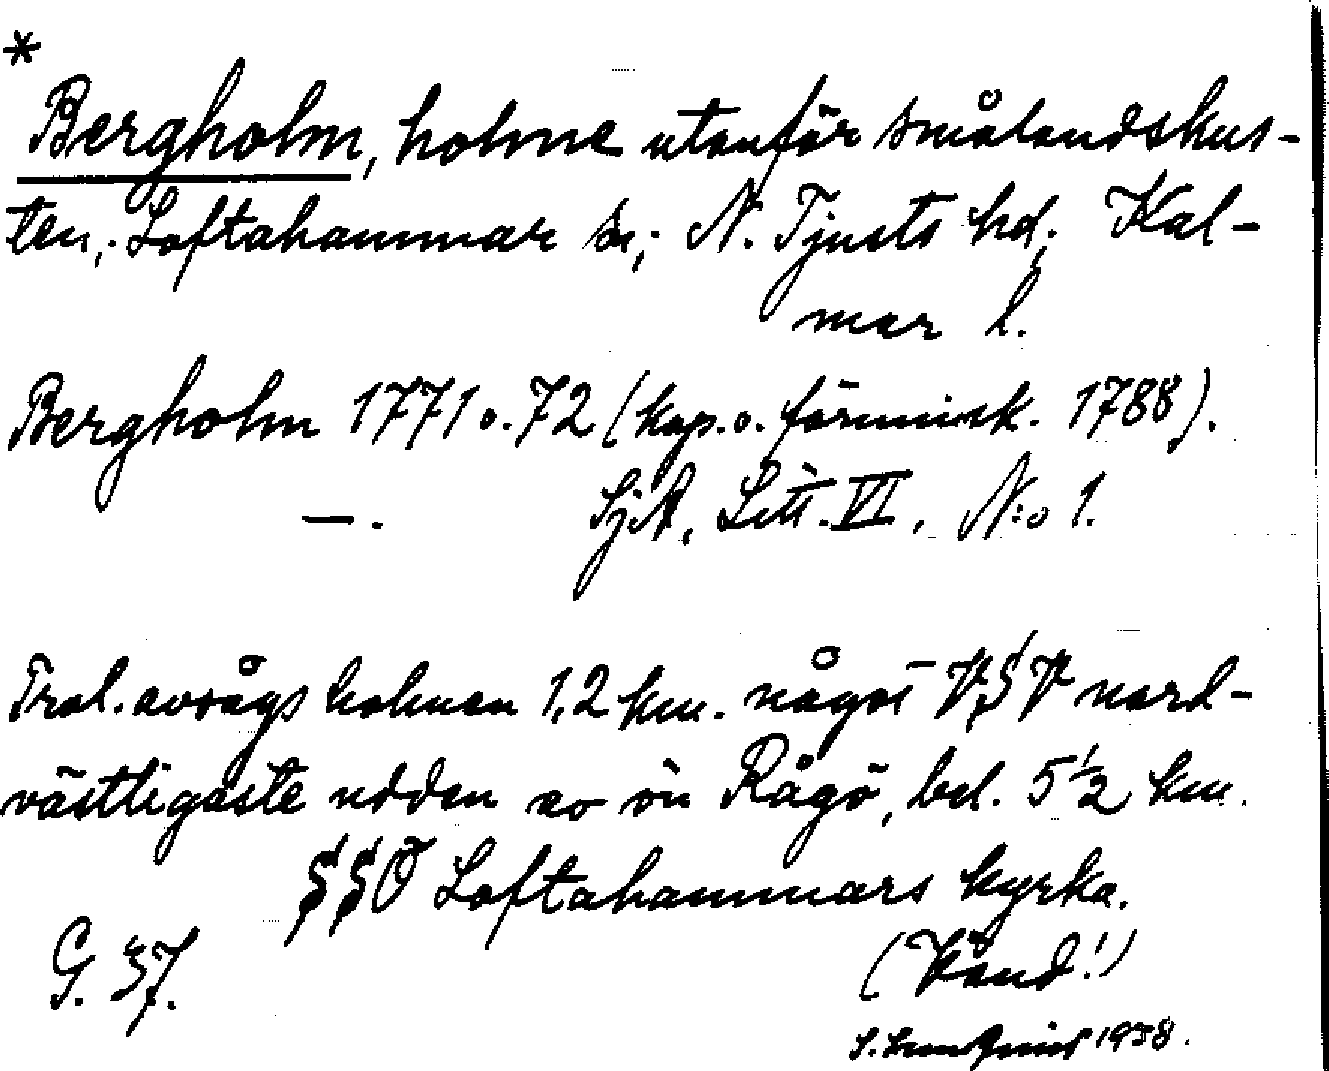 *
Bergholm, holme utanför smålandskus-
ten, Loftahammar sn, N. Tjusts hd, Kal-
mar l.
Bergholm 1771 o. 72 (kop. o. förminsk. 1788).
—. SjA, Litt. VI, N:o 1.
Trol. avsågs holmen 1,2 km. något VSV nord-
västligaste udden av ön Rågö, bel. 5 1/2 km.
SSO Loftahammars kyrka.
G. 37. (Vänd!)
1938.